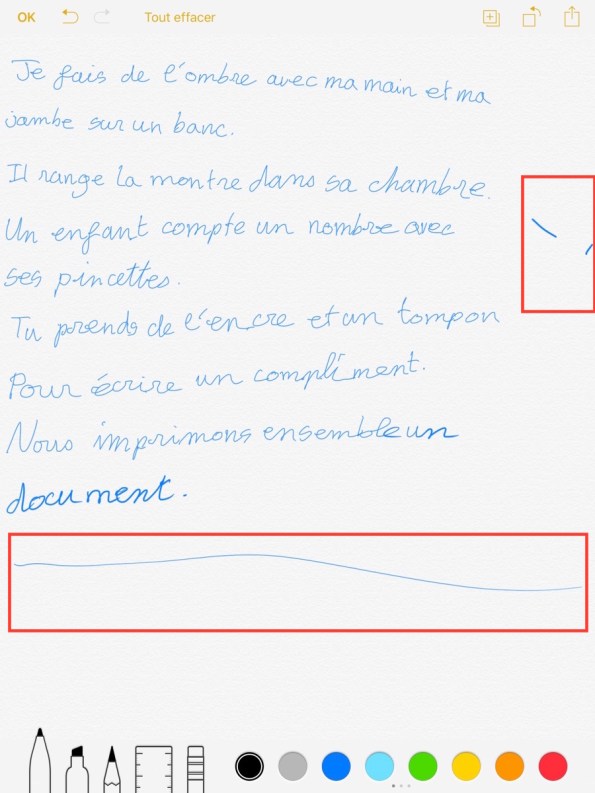 OK Tout effacer
Je fais de l'ombre avec ma main et ma
jambe sur un banc.
Il range la montre dans sa chambre.
Un enfant compte un nombre avec
ses pincettes.
Tu prends de l'encre et un tompon
Pour écrire un compliment.
Nous imprimons ensemble un
document.